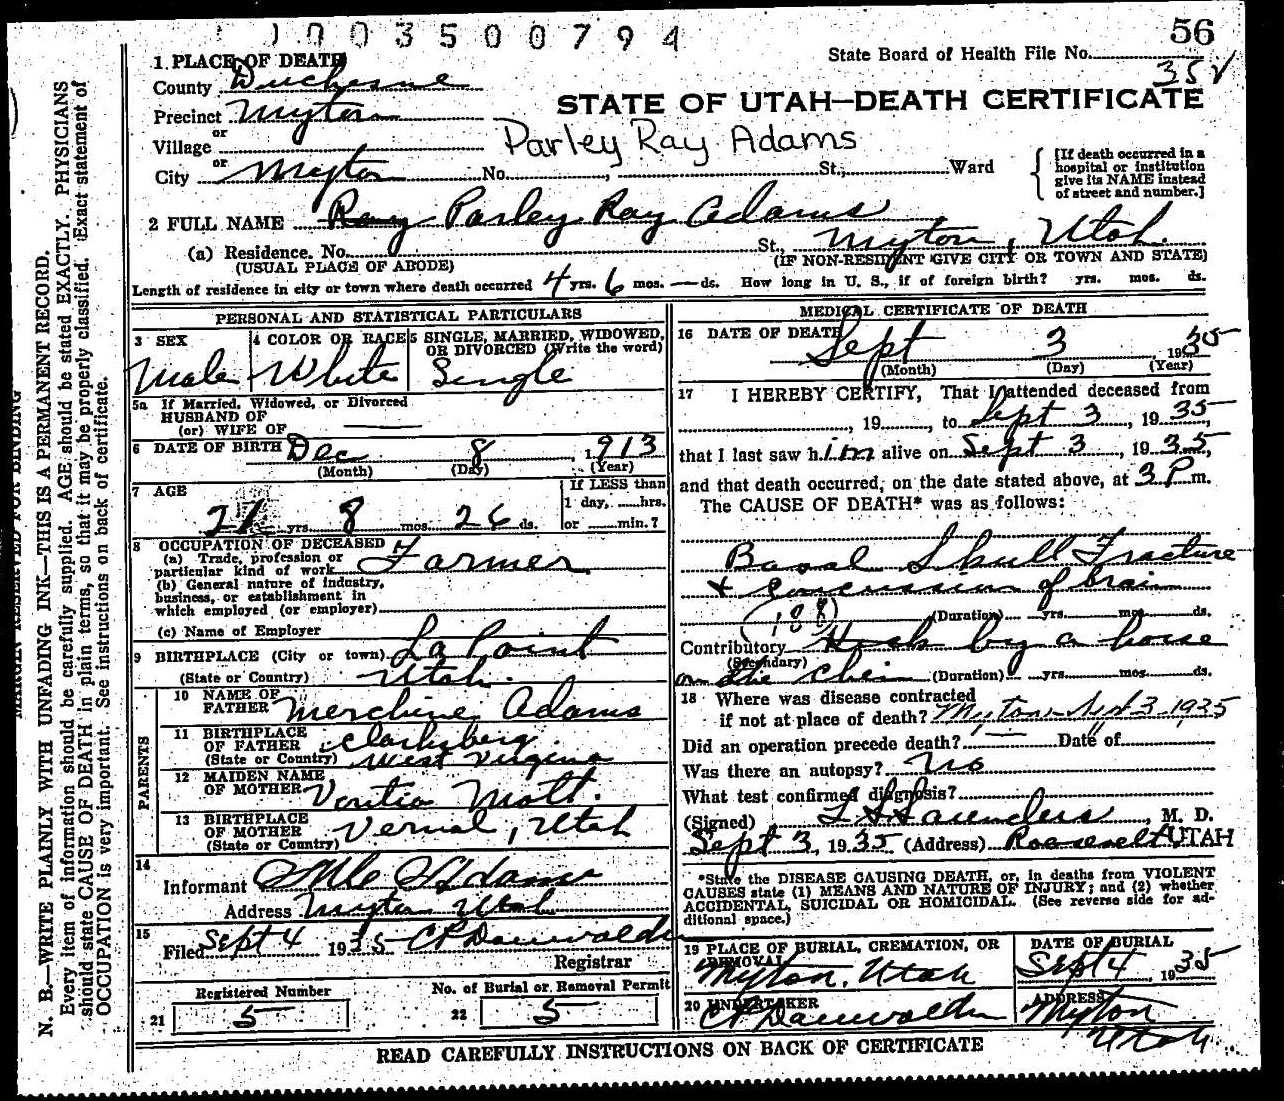 0003500794
56
State Board of Health File No.
35
1. PLACE OF DEATH
County Duchesne
STATE OF UTAH—DEATH CERTIFICATE
Precinct Myton
or
Village
Parley Ray Adams
or
City Myton No. , St., Ward
[If death occurred in a hospital or institution give its NAME instead of street and number.]
2 FULL NAME Ray Parley Ray Adams
(a) Residence. No. St., Myton, Utah.
(USUAL PLACE OF ABODE) (IF NON-RESIDENT GIVE CITY OR TOWN AND STATE)
Length of residence in city or town where death occurred 4 yrs. 6 mos. — ds. How long in U. S., if of foreign birth? yrs. mos. ds.
PERSONAL AND STATISTICAL PARTICULARS
3 SEX
Male
4 COLOR OR RACE
White
5 SINGLE, MARRIED, WIDOWED,
OR DIVORCED (Write the word)
Single
5a If Married, Widowed, or Divorced
HUSBAND OF
(or) WIFE OF
6 DATE OF BIRTH Dec 8, 1913
(Month) (Day) (Year)
7 AGE
21 yrs. 8 mos. 26 ds.
If LESS than
1 day, hrs.
or min.?
8 OCCUPATION OF DECEASED
(a) Trade, profession or
particular kind of work Farmer
(b) General nature of industry,
business, or establishment in
which employed (or employer)
(c) Name of Employer
9 BIRTHPLACE (City or town) La Point
(State or Country) Utah.
PARENTS
10 NAME OF
FATHER Adams
11 BIRTHPLACE
OF FATHER
(State or Country) West Virginia
12 MAIDEN NAME
OF MOTHER Mott.
13 BIRTHPLACE
OF MOTHER Vernal, Utah
(State or Country)
14
Informant Adams
Address Myton Utah
15
Filed Sept 4 1935 C P Dauwalder
Registrar
Registered Number
21 5
No. of Burial or Removal Permit
22 5
MEDICAL CERTIFICATE OF DEATH
16 DATE OF DEATH
Sept 3 1935
(Month) (Day) (Year)
17 I HEREBY CERTIFY, That I attended deceased from
, 19 , to Sept 3, 1935,
that I last saw him alive on Sept 3, 1935,
and that death occurred, on the date stated above, at 3 P. m.
The CAUSE OF DEATH* was as follows:
Basal Skull Fracture
+ concussion of brain
(188) (Duration) yrs. mos. ds.
Contributory Kick by a horse
(Secondary)
on the chin (Duration) yrs. mos. ds.
18 Where was disease contracted
if not at place of death? Myton Sept 3-1935
Did an operation precede death? — Date of
Was there an autopsy? No
What test confirmed diagnosis?
(Signed) Saunders, M. D.
Sept 3, 1935 (Address) Roosevelt UTAH
*State the DISEASE CAUSING DEATH, or, in deaths from VIOLENT
CAUSES state (1) MEANS AND NATURE OF INJURY; and (2) whether
ACCIDENTAL, SUICIDAL OR HOMICIDAL. (See reverse side for ad-
ditional space.)
19 PLACE OF BURIAL, CREMATION, OR
REMOVAL
Myton, Utah
DATE OF BURIAL
Sept 4 1935
20 UNDERTAKER
C P Dauwalder
ADDRESS
Myton
Utah
READ CAREFULLY INSTRUCTIONS ON BACK OF CERTIFICATE
MARGIN RESERVED FOR BINDING
N. B.—WRITE PLAINLY WITH UNFADING INK—THIS IS A PERMANENT RECORD.
Every item of information should be carefully supplied. AGE should be stated EXACTLY. PHYSICIANS
should state CAUSE OF DEATH in plain terms, so that it may be properly classified. Exact statement of
OCCUPATION is very important. See instructions on back of certificate.